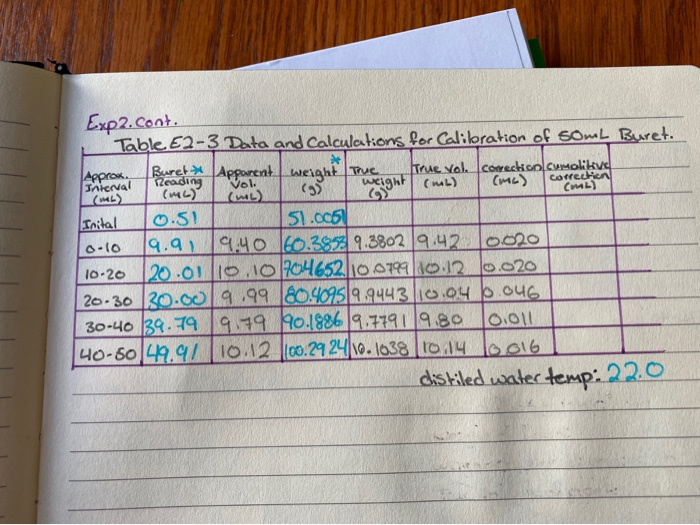 Exp2. Cont.
Table E2-3 Data and Calculations for Calibration of 50mL Buret.
Approx. Interval (mL) Buret* Reading (mL) Apparent Vol. (mL) weight* (g) True weight (g) True Vol. (mL) correction (mL) cumalitive correction (mL)
Inital 0.51 51.0051
0-10 9.91 9.40 60.3853 9.3802 9.42 0.020
10-20 20.01 10.10 704652 10.0799 10.12 0.020
20-30 30.00 9.99 80.4095 9.9443 10.04 0.046
30-40 39.79 9.79 90.1886 9.7791 9.80 0.011
40-50 49.91 10.12 100.2924 10.1038 10.14 0.016
distiled water temp: 22.0